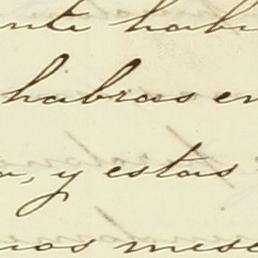 nte habr
habras en
a, y estas
nos mese